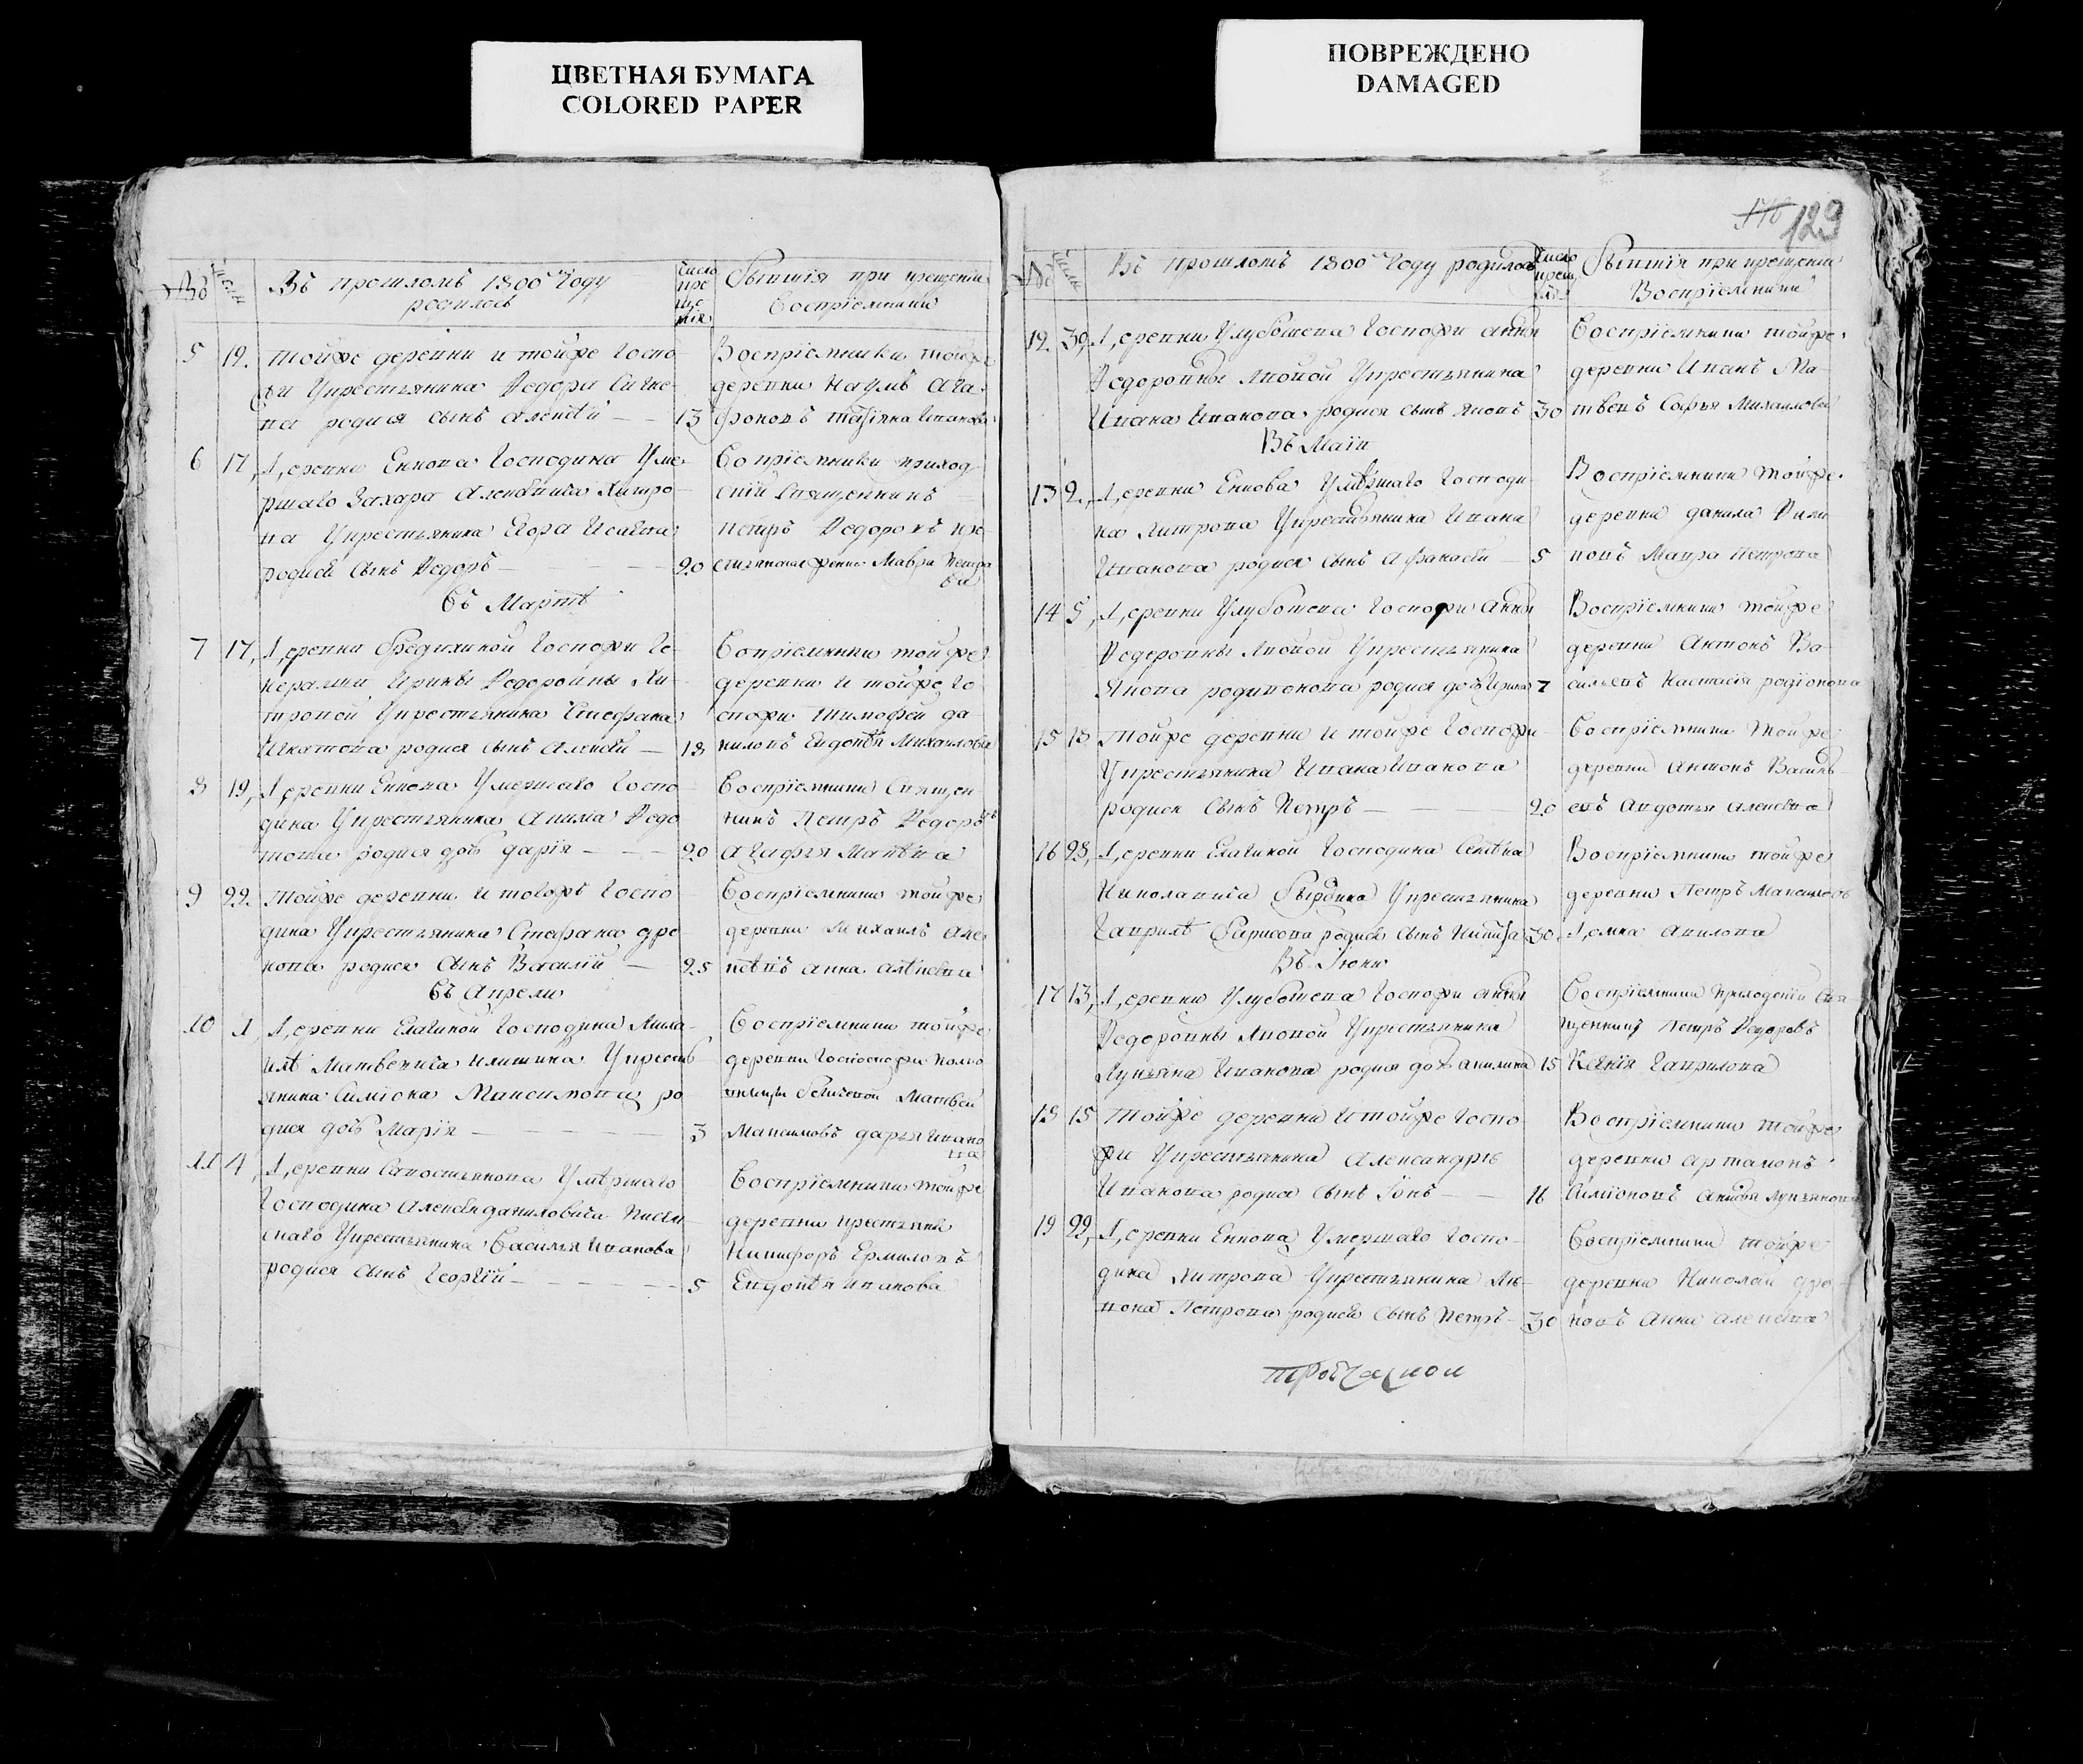 ЦВЕТНАЯ БУМАГА
COLORED PAPER
ПОВРЕЖДЕНО
DAMAGED
129
Въ прошломъ 1800 году
родилось
число
кре
ще
нія
бывшія при крещеніи
воспріемники
5 12. тойже деревни и тойже госпо
жи у крестьянина Ѳедора
ва родися сынъ алеѯѣй — 13
Воспріемники тойже
деревни Наумъ Ага
фоновъ Иванова
6 17, Деревни Енкова господина уме
ршаго Захара алеѯѣича Хитро
ва у крестьянина Егора Исаева
родися сынъ Ѳедоръ — 20
Вопріемники приход
скій священникъ
Петръ Ѳедоровъ кре
стьянская женка Мавра Петро
ва
въ Мартѣ
7 17, Деревни госпожи ге
неральши Ирины Ѳедоровны Хи
тровой у крестьянина Стефана
Игнатова родися сынъ алеѯѣй — 18
Вопріемники тойже
деревни и тойже го
спожи Тимофей да
ниловъ Евдокѣя Михаилова
8 19, Деревни Енкова умершаго госпо
дина у крестьянина Ѳедо
това родися дочь дарія — 20
Воспріемники Священ
никъ Петръ Ѳедоровъ
агафья Матвѣева
9 22. тойже деревни и тогожъ госпо
дина у крестьянина Стефана дро
нова родися сынъ Василій — 25
Воспріемники тойже
деревни Михаилъ але
ѯѣевъ анна алеѯѣева
въ Апрели
10 1, Деревни Елагиной господина Миха
илѣ Матвеевича Ильшина у кресть
янина Симіона Максимова ро
дися дочь Марія — 3
Воспріемники тойже
деревни госпожи
Матвей
Максимовъ дарья Ивано
ва
11 4, Деревни Севостьянова умѣршаго
господина алеѯѣя даниловича
скаго у крестьянина Василья Иванова
родися сынъ Георгій — 5
Воспріемники тойже
деревни крестьяне
Никифоръ Ермиловъ
Евдокѣя Иванова
Въ прошломъ 1800 году родилось
число
крещ
бывшія при крещеніи
Воспріемники
12. 30, Деревни Глубошева госпожи анны
Ѳедоровны Львовой у крестьянина
Ивана Иванова родися сынъ Яковъ 30
Воспріемники тойже
деревни Иванъ Ма
твеевъ Софья Михаилова
Въ Маіи
13 2, Деревни Енкова умѣршаго господи
на Хитрова у крестьянина Ивана
Иванова родися сынъ Афанасей — 5
Воспріемники тойже
деревни данила Фили
повъ Мавра Петрова
14 5, Деревни Глубошева госпожи анны
Ѳедоровны Львовой у крестьянина
Якова родионова родися дочь Ирина 7
Воспріемники тойже
деревни Антонъ Ва
сильевъ Настасія родіонова
15 18 тойже деревни и тойже госпожи
у крестьянина Ивана Иванова
родися сынъ Петръ — 20
Воспріемники тойже
деревни Антонъ Василь
евъ Авдотья алеѯѣева
16 28, Деревни Елагиной господина
Николаевича у крестьянина
Гаврилѣ Барисова родися сынъ Никита 30.
Воспріемники тойже
деревни Петръ Максимовъ
Домна Авилова
Въ Іюни
17 13, Деревни Глубошева госпожи анны
Ѳедоровны Львовой у крестьянина
Лукьяна Иванова родися дочь акилина 15
Воспріемники приходскій свя
щенникъ Петръ Ѳедоровъ
Ксенія Гаврилова
18 15 тойже деревни и тойже госпо
жи у крестьянина Александръ
Иванова родися сынъ Іовъ — 16
Воспріемники тойже
деревни артамонъ
Симіоновъ Лукьянова
19 22, Деревни Енкова умершаго госпо
дина Хитрова у крестьянина
Петрова родися сынъ Петръ — 30
Воспріемники тойже
деревни Николай дро
новъ анна алеѯѣева